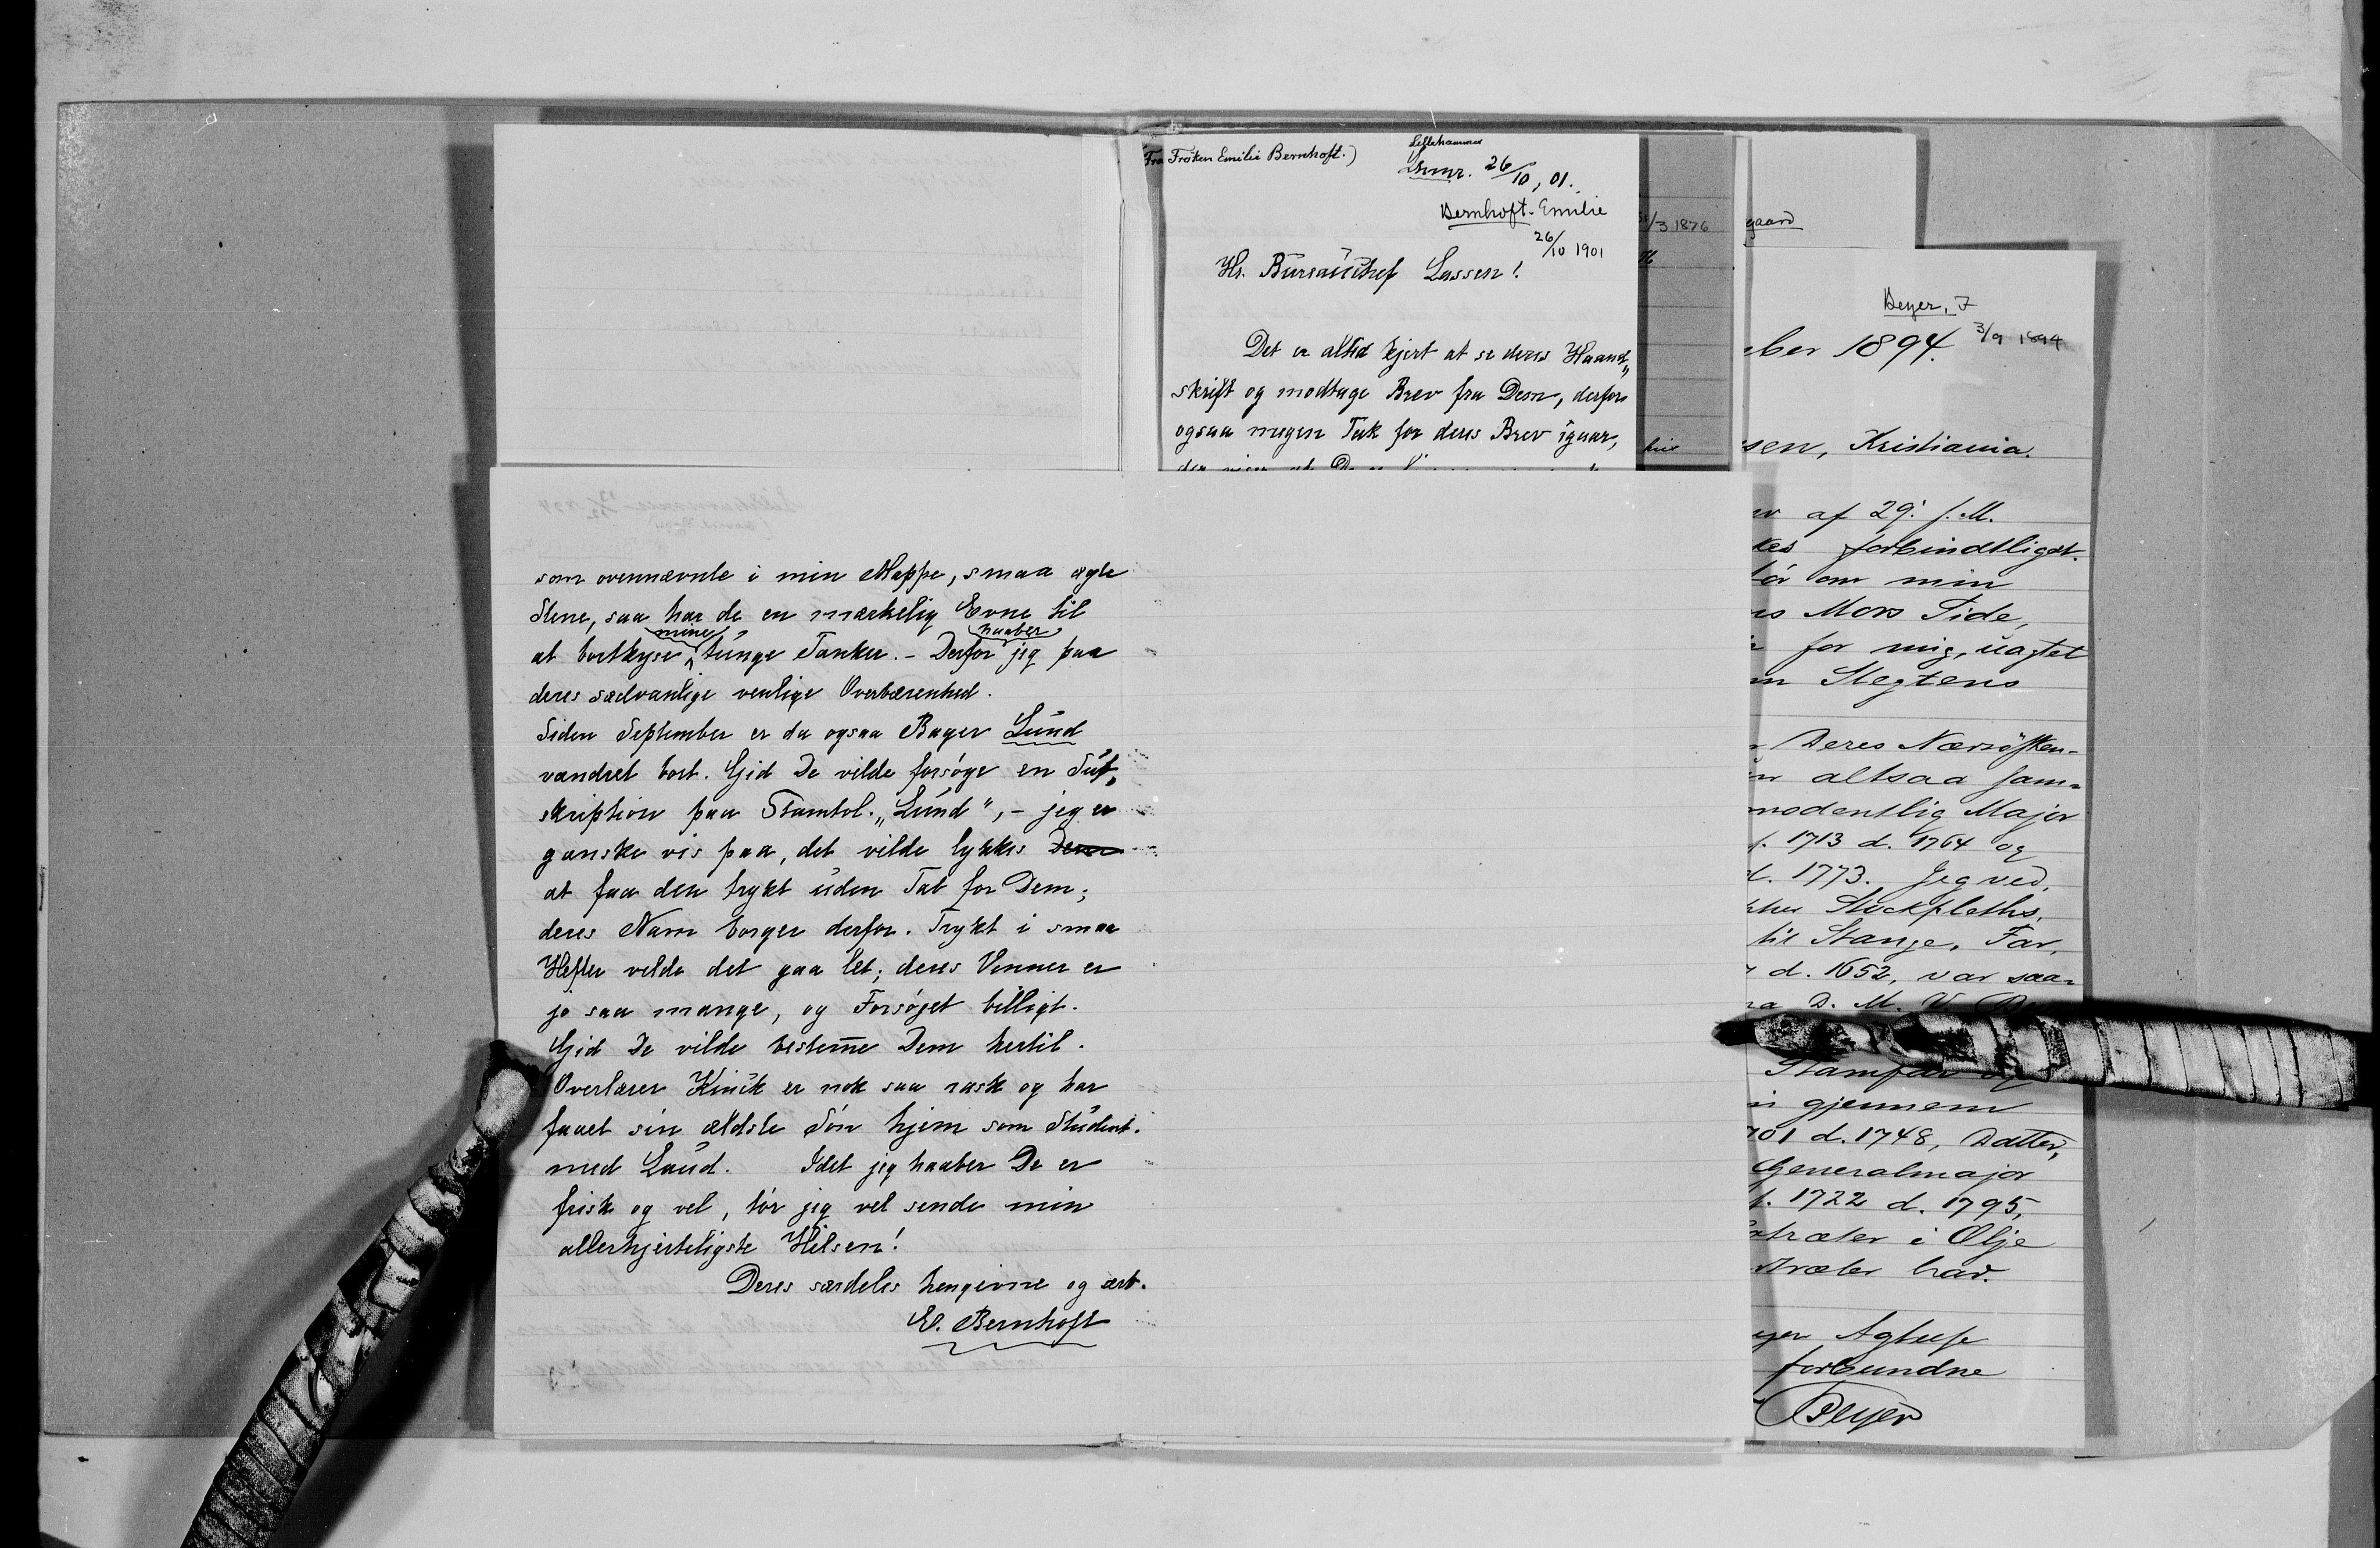 Fra Frøken Emilie Bernhoft.)
Lillehammer
Lhmr. 26/10, 01.
Bernhoft. Emilie
26/10 1901
Hr. Bureauchef Lassen!
Det er altid kjert at se deres Haand„
skrift og modtage Brev fra Dem, derfor
ogsaa megen Tak for deres Brev igaar,
/3 1876
gaard
Beyer, F
3/9 1894
ber 1894.
sen, Kristiania.
af 29. f. M.
kes forbindtligst.
før om min
Mors Side,
for mig, uagtet
Slegtens
Deres Nærsösken-
altsaa sam-
modentlig Major
f. 1713 d. 1764 og
d. 1773. Jeg ved,
Stockfleths,
til Stange. Far,
d. 1652, var saa-
D. M. V.
Stamfar og
gjennem
701 d. 1748, Datter,
Generalmajor
f. 1722 d. 1795,
træter i Olje
træter har.
Agtelse
forbundne
Beyer
som ovennævnte i min Mappe, smaa ægte
Stene, saa har de en mærkelig Evne til
mine haaber
at bortkyse tunge Tanker. – Derfor jeg paa
deres sædvanlige venlige Overbærenhed.
Siden September er da ogsaa Bager Lund
vandret bort. Gid De vilde forsøge en Sub„
skription paa Stamtvl. „Lund“, – jeg er
ganske vis paa, det vilde lykkes Dem
at faa den trykt uden Tab for Dem;
deres Navn borger derfor. Trykt i smaa
Hefter vilde det gaa let; deres Venner er
jo saa mange, og Forsøget billigt.
Gid De vilde bestem̅e Dem hertil.
Overlærer Kinck er nok saa rask og har
faaet sin ældste Søn hjem som Student.
med Laud. Idet jeg haaber De er
frisk og vel, tør jeg vel sende min
allerhjerteligste Hilsen!
Deres særdeles hengivne og ærb.
E. Bernhoft